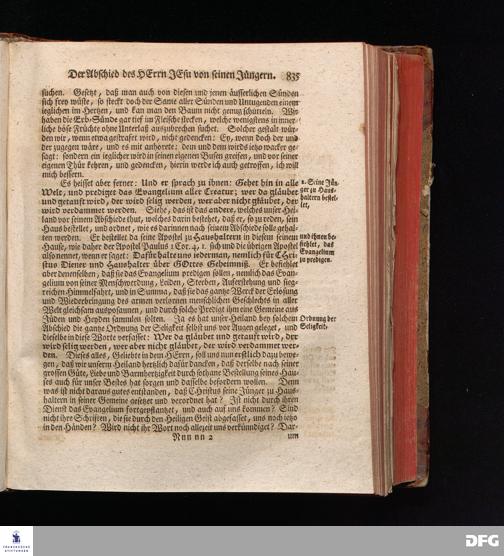 Der Abschied des HErrn JEsu von seinen Jüngern. 835
suchen. Gesetzt, daß man auch von diesen und jenen äusserlichen Sünden
sich frey wüste, so steckt doch der Same aller Sünden und Untugenden einem
ieglichen im Hertzen, und kan man den Baum nicht genug schütteln. Wir
haben die Erb-Sünde gar tief im Fleische stecken, welche wenigstens in inner-
liche böse Früchte ohne Unterlaß auszubrechen suchet. Solcher gestalt wür-
den wir, wenn etwa gestrafet wird, nicht gedencken: Ey, wenn doch der und
der zugegen wäre, und es mit anhörete: dem und dem wirds ietzo wacker ge-
sagt: sondern ein ieglicher wird in seinen eigenen Busen greiffen, und vor seiner
eigenen Thür kehren, und gedencken, hierin werde ich auch getroffen, ich will
mich bessern.
Es heisset aber ferner: Und er sprach zu ihnen: Gehet hin in alle
Welt, und prediget das Evangelium aller Creatur; wer da gläubet
und getauft wird, der wird selig werden, wer aber nicht gläubet, der
wird verdammet werden. Siehe, das ist das andere, welches unser Hei-
land vor seinem Abschiede thut, welches darin bestehet, daß er, so zu reden, sein
Haus bestellet, und ordnet, wie es darinnen nach seinem Abschiede solle gehal-
ten werden. Er bestellet da seine Apostel zu Haushaltern in diesem seinem
Hause, wie daher der Apostel Paulus 1 Cor. 4, 1. sich und die übrigen Apostel
also nennet, wenn er saget: Dafür halte uns iederman, nemlich für Chri-
stus Diener und Haushalter über GOttes Geheimniß. Er befiehlet
aber denenselben, daß sie das Evangelium predigen sollen, nemlich das Evan-
gelium von seiner Menschwerdung, Leiden, Sterben, Auferstehung und sieg-
reichen Himmelfahrt, und in Summa, daß sie das gantze Werck der Erlösung
und Wiederbringung des armen verlornen menschlichen Geschlechts in aller
Welt gleichsam ausposaunen, und durch solche Predigt ihm eine Gemeine aus
Jüden und Heyden sammlen solten. Ja es hat unser Heiland bey solchem
Abschied die gantze Ordnung der Seligkeit selbst uns vor Augen geleget, und
dieselbe in diese Worte verfasset: Wer da gläubet und getauft wird, der
wird selig werden, wer aber nicht gläubet, der wird verdammet wer-
den. Dieses alles, Geliebte in dem HErrn, soll uns nun erstlich dazu bewe-
gen, daß wir unserm Heiland hertzlich dafür dancken, daß derselbe nach seiner
grossen Güte, Liebe und Barmhertzigkeit durch sothane Bestellung seines Hau-
ses auch für unser Bestes hat sorgen und dasselbe befördern wollen. Denn
was ist nicht daraus gutes entstanden, daß Christus seine Jünger zu Haus-
haltern in seiner Gemeine gesetzet und verordnet hat? Ist nicht durch ihren
Dienst das Evangelium fortgepflantzet, und auch auf uns kommen? Sind
nicht ihre Schriften, die sie durch den Heiligen Geist abgefasset, uns noch ietzo
in den Händen? Wird nicht ihr Wort noch allezeit uns verkündiget? Dar-
Nnn nn 2 um
2. Seine Jün-
ger zu Haus-
haltern bestel-
let,
und ihnen be-
fiehlet, das
Evangelium
zu predigen.
Ordnung der
Seligkeit.
FRANCKESCHE
STIFTUNGEN
DFG